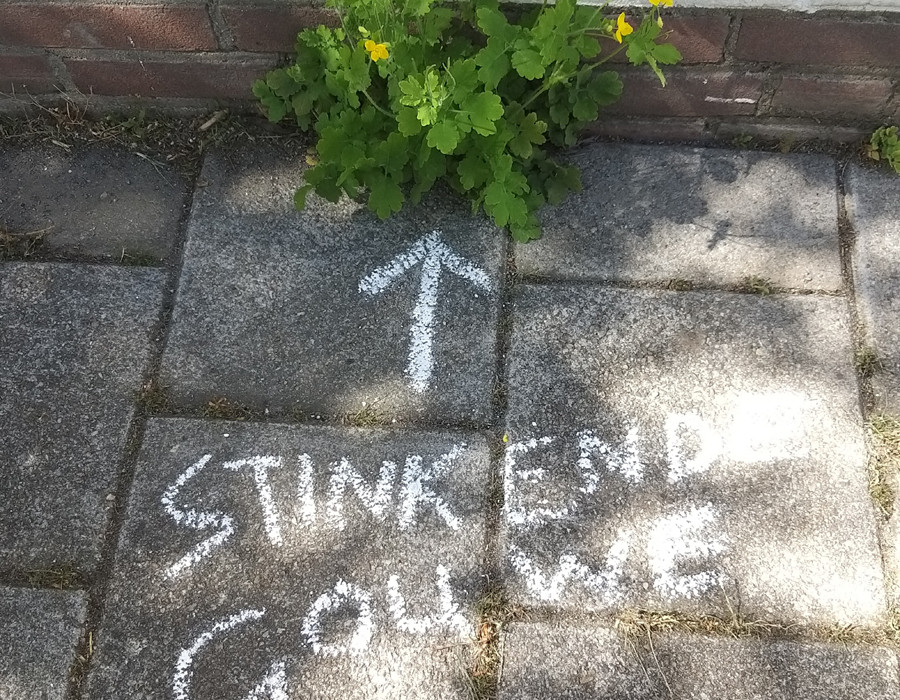 STINKENDE
GOUWE